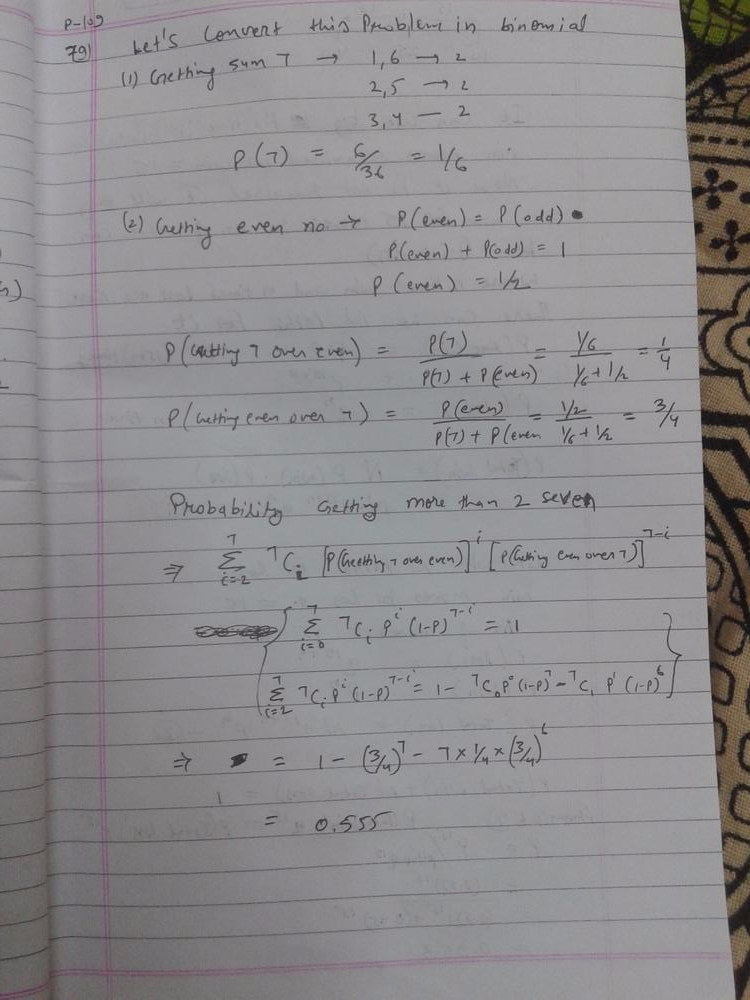 P-109
79) Let's Convert this Problem in binomial
(1) Getting sum 7 → 1,6 → 2
2,5 → 2
3,4 — 2
P(7) = 6/36 = 1/6
(2) Getting even no → P(even) = P(odd)
P(even) + P(odd) = 1
P(even) = 1/2
P(Getting 7 over even) = P(7) / P(7) + P(even) = 1/6 / 1/6 + 1/2 = 1/4
P(Getting even over 7) = P(even) / P(7) + P(even = 1/2 / 1/6 + 1/2 = 3/4
Probability Getting more than 2 seven
⇒ ∑_{i=2}^{7} ⁷C_i [P(Geetting 7 over even)]^i [P(Getting even over 7)]^{7-i}
{ ∑_{i=0}^{7} ⁷C_i p^i (1-p)^{7-i} = 1
∑_{i=2}^{7} ⁷C_i p^i (1-p)^{7-i} = 1 - ⁷C₀ p⁰ (1-p)⁷ - ⁷C₁ p¹ (1-p)⁶ }
⇒ = 1 - (3/4)⁷ - 7 × 1/4 × (3/4)⁶
= 0.555